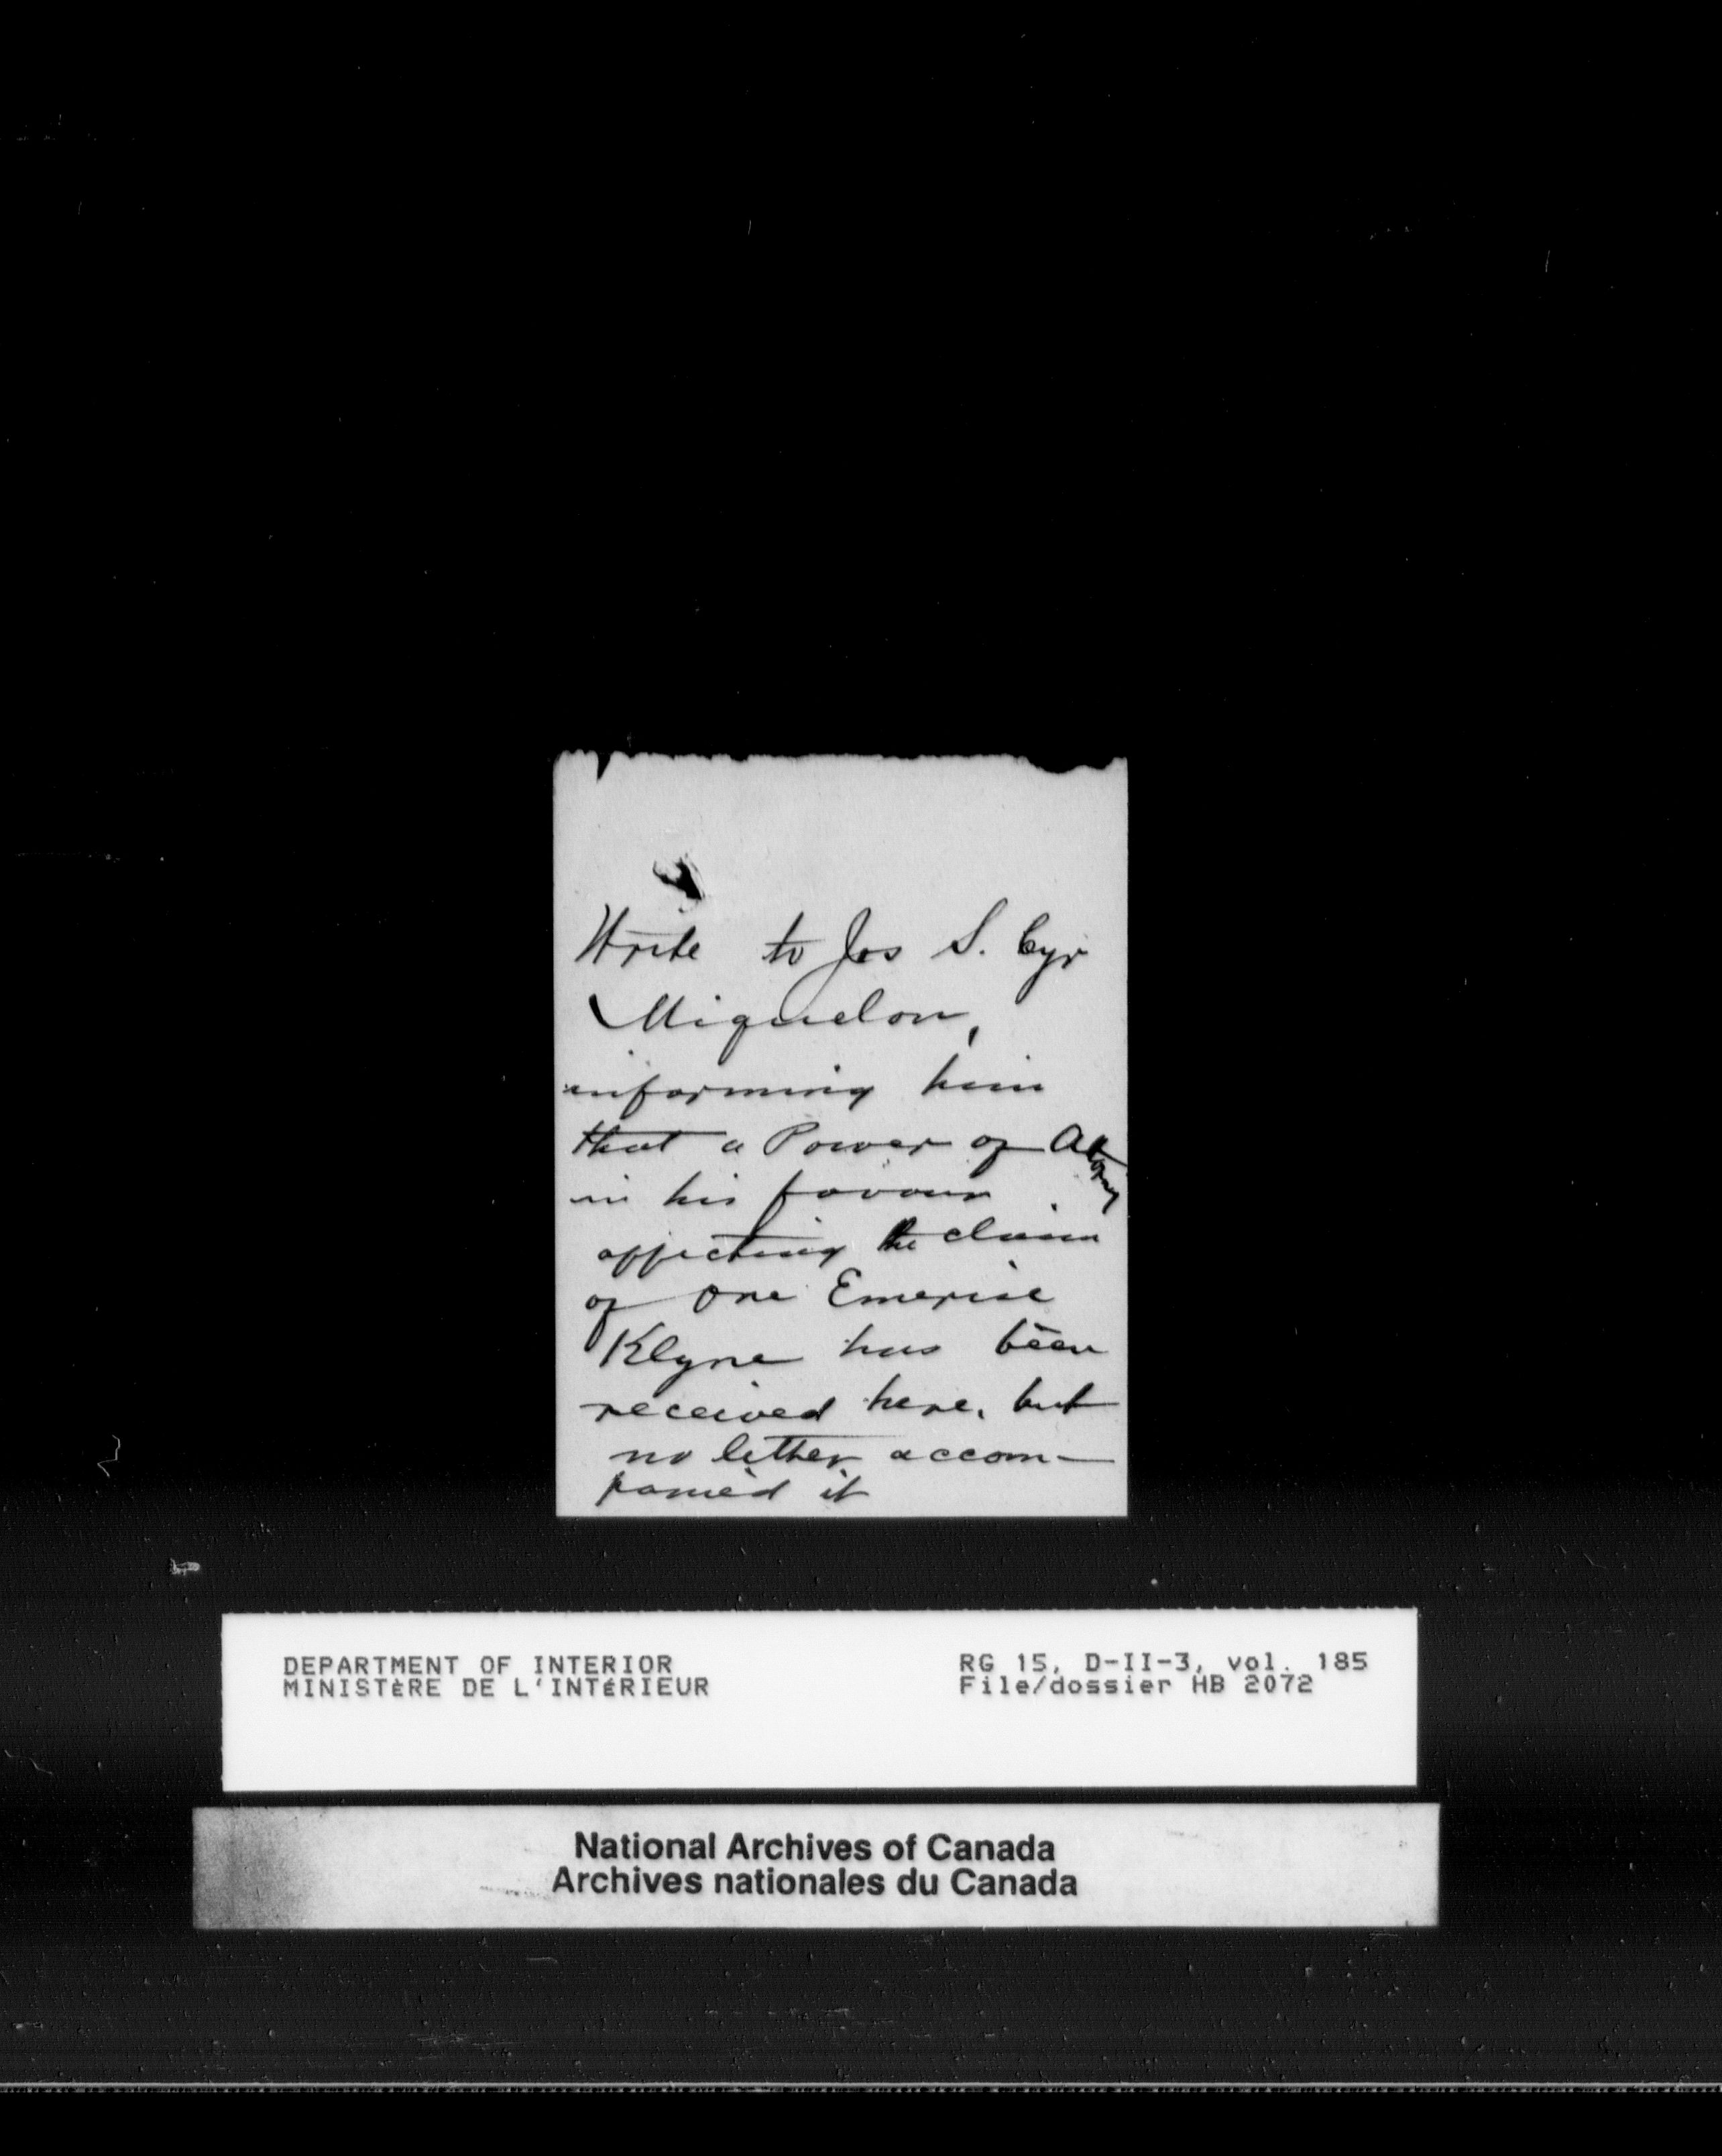 Write to Jos S. Cyr
Miquelon,
informing him
that a Power of Attorney
in his favour
affecting the claim
of one Emerise
Klyne has been
received here, but
no letter accom-
panied it
DEPARTMENT OF INTERIOR
MINISTÈRE DE L'INTÉRIEUR
RG 15, D-II-3, vol. 185
File/dossier HB 2072
National Archives of Canada
Archives nationales du Canada